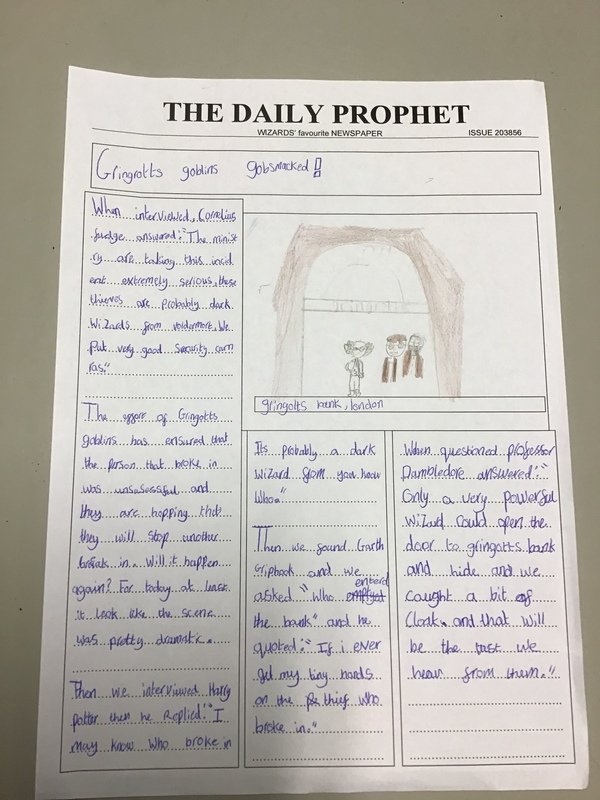 THE DAILY PROPHET
WIZARDS' favourite NEWSPAPER
ISSUE 203856
Gringrotts goblins gobsmacked!
When interviewed, Cornelius
fudge answered:"The minist
ry are taking this incid
ent extremely serious, these
thieves are probably dark
Wizards from voldermort. We
Put very good Security cam
ras."
The effore of Gringotts
goblins has ensured that
the person that broke in
was unsusessful and
they are hopping that
they will stop another
break in. Will it happen
again? For today at least
it look like the scene
was pretty dramatic.
Then we interviewed Harry
potter then he Replied:"I
may know Who broke in
gringotts bank, london
Its probably a dark
Wizard from you know
Who."
Then we found Garth
Griphook and we
asked "Who enterd
the bank" and he
quoted:"If i ever
get my tiny hands
on the thief who
broke in."
When questioned professor
Dambledore answered:"
Only a very powerful
Wizard Could open the
door to gringotts bank
and hide and we
caught a bit of
Cloak. and that will
be the last we
hear from them."